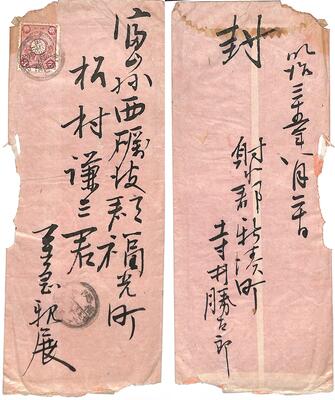 富山县西礪波郡福光町
松村謙三君
親展
封
明治三十五年八月二十日
射水郡新湊町
寺井勝吉郎